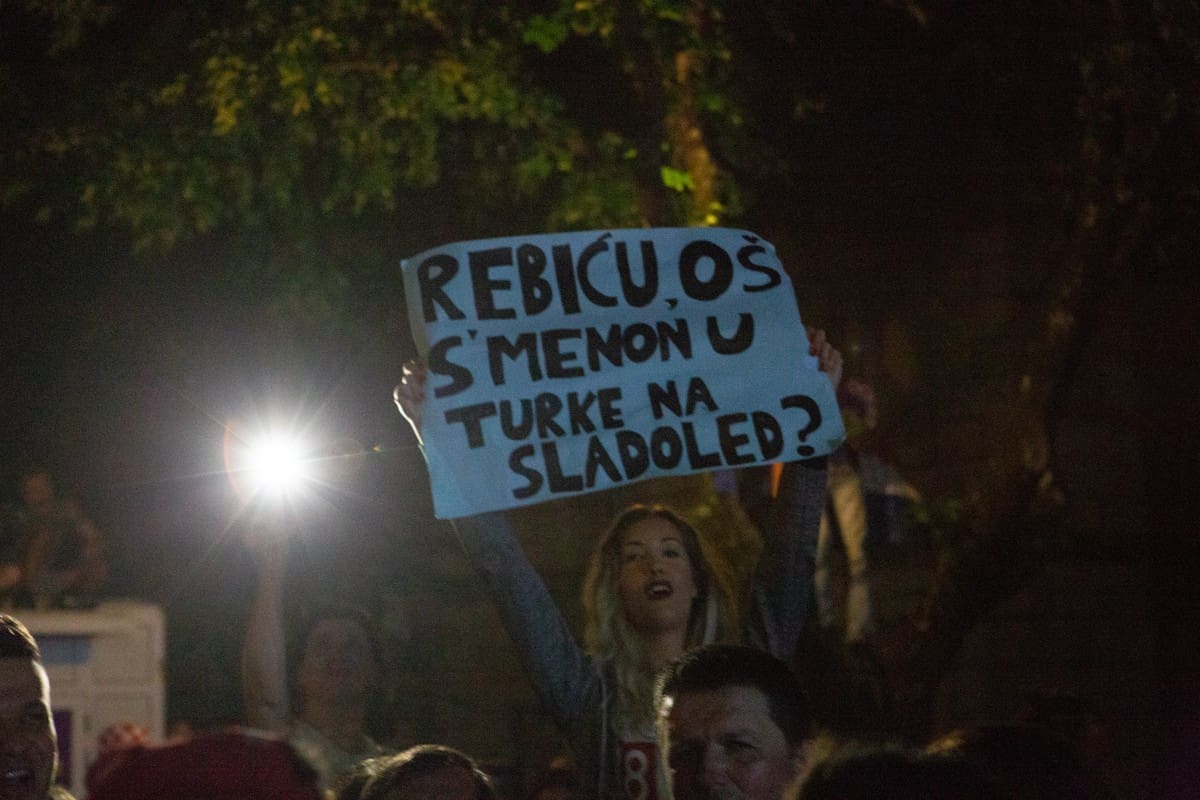 REBIĆU, OŠ
S'MENON U
TURKE NA
SLADOLED?
8